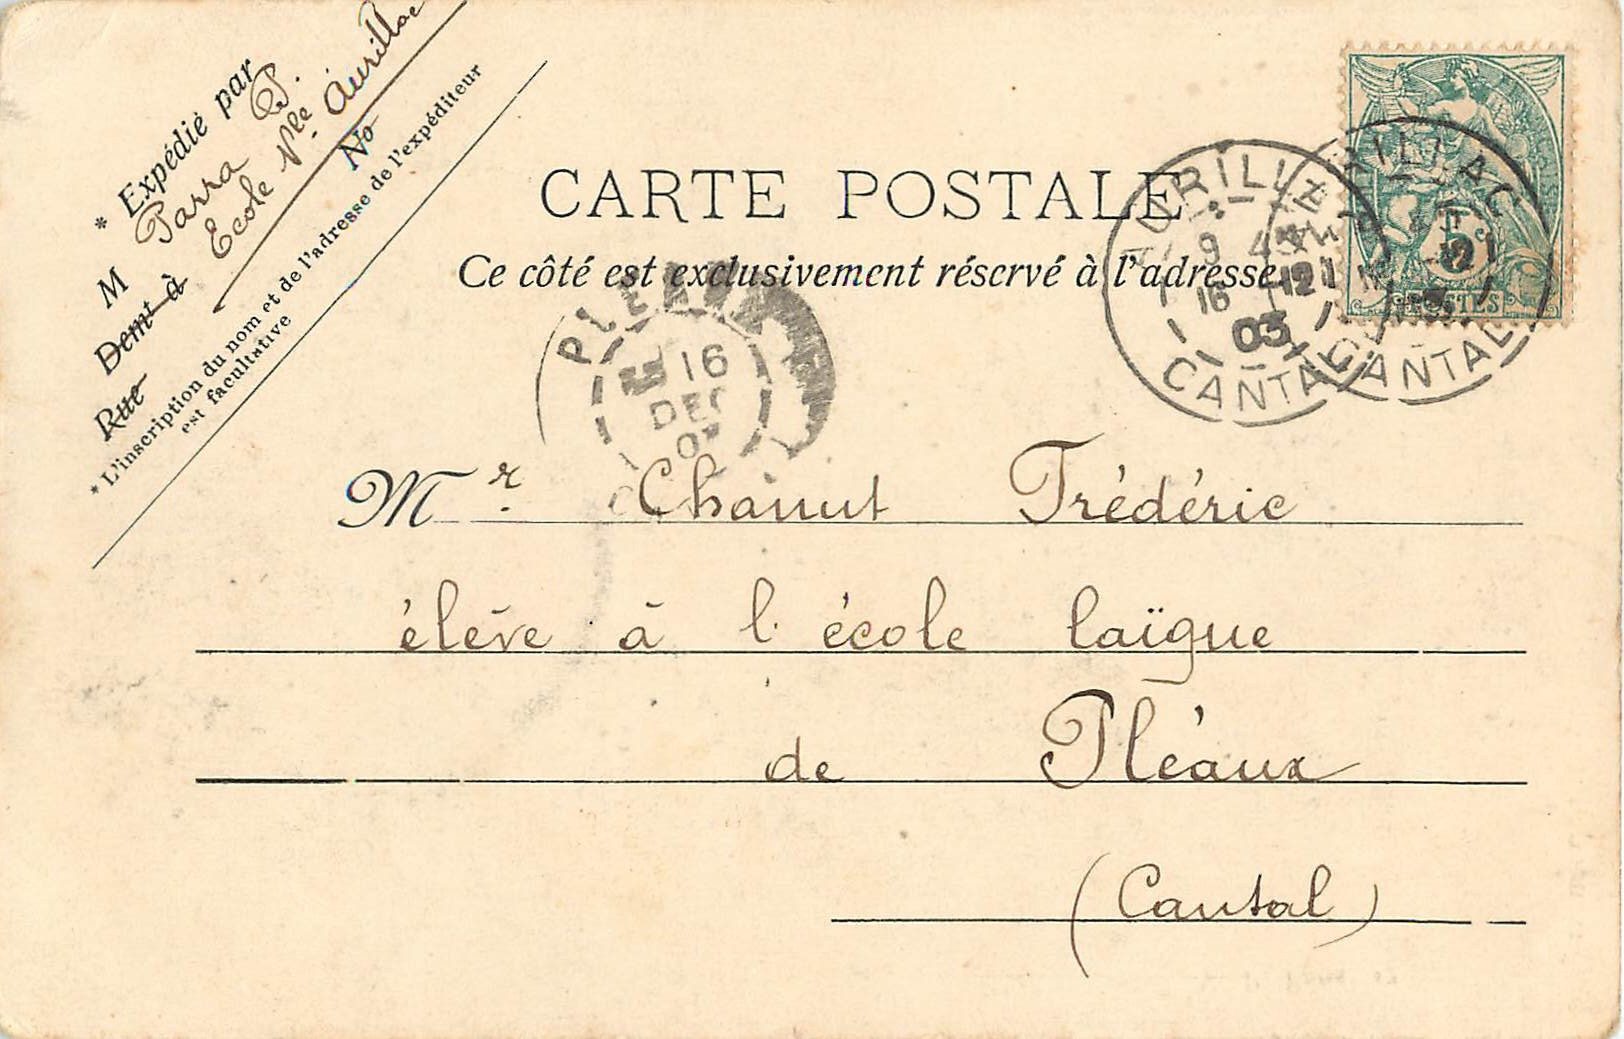 * Expédié par
M Parra P.
Demt à Ecole Nle Aurillac
Rue No
* L'inscription du nom et de l'adresse de l'expéditeur
est facultative
CARTE POSTALE
Ce côté est exclusivement réservé à l'adresse.
AURILLAC
16 12
03
CANTAL
AURILLAC
CANTAL
5c
POSTES
PLEAUX
16
DEC
03
Mr. Chanut Frédéric
élève à l'école laïque
de Pléaux
(Cantal)